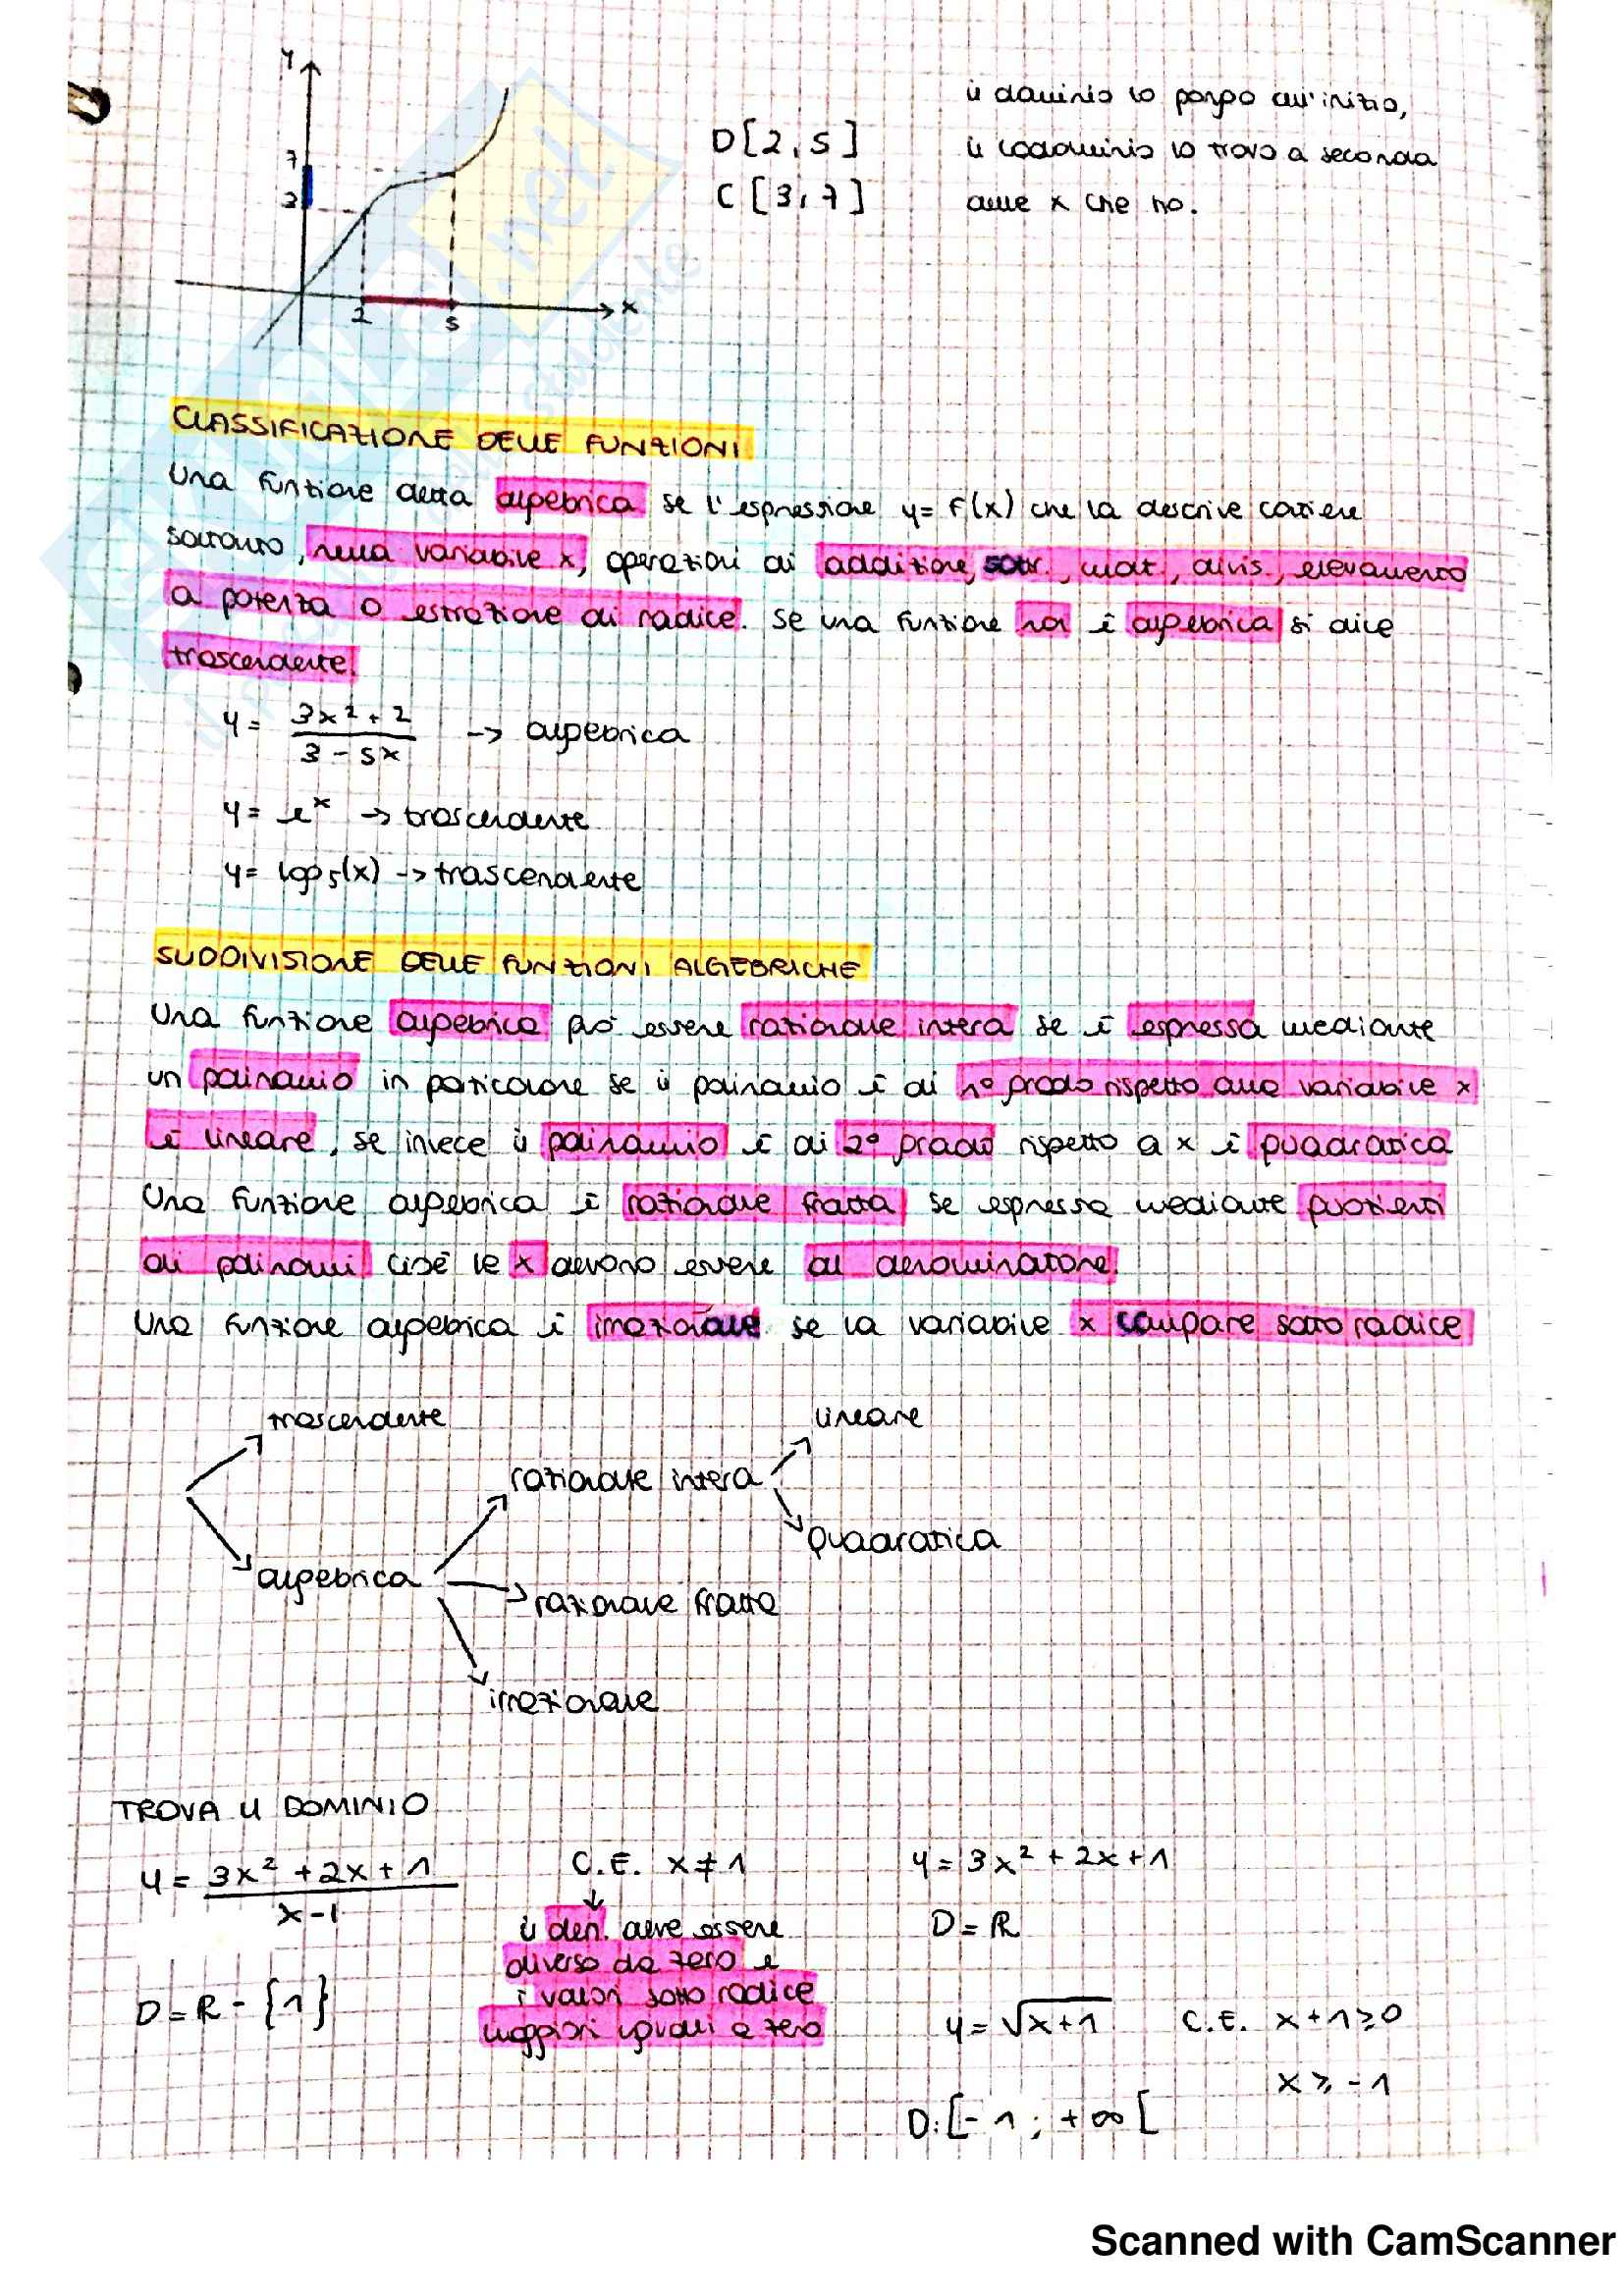 y
7
3
2
5
x
D[2,5]
C[3,7]
il dominio lo pongo all'inizio,
il codominio lo trovo a seconda
delle x che ho.
CLASSIFICAZIONE DELLE FUNZIONI
Una funzione detta algebrica se l'espressione y = f(x) che la descrive contiene
soltanto, nella variabile x, operazioni di addizione, sottr., molt., divis., elevamento
a potenza o estrazione di radice. Se una funzione non è algebrica si dice
trascendente.
y = 3x² + 2 / 3 - 5x -> algebrica
y = eˣ -> trascendente
y = log₅(x) -> trascendente
SUDDIVISIONE DELLE FUNZIONI ALGEBRICHE
Una funzione algebrica può essere razionale intera se è espressa mediante
un polinomio in particolare se il polinomio è di 1° grado rispetto alla variabile x
è lineare, se invece il polinomio è di 2° grado rispetto a x è quadratica
Una funzione algebrica è razionale fratta se espressa mediante quozienti
di polinomi cioè le x devono essere al denominatore.
Una funzione algebrica è irrazionale se la variabile x compare sotto radice
trascendente
lineare
razionale intera
quadratica
algebrica
razionale fratta
irrazionale
TROVA IL DOMINIO
y = 3x² + 2x + 1 / x - 1
C.E. x ≠ 1
y = 3x² + 2x + 1
il den. deve essere
diverso da zero e
i valori sotto radice
maggiori uguali a zero
D = R
D = R - {1}
y = √x+1
C.E. x + 1 ≥ 0
x ≥ -1
D: [-1 ; +∞ [
Scanned with CamScanner